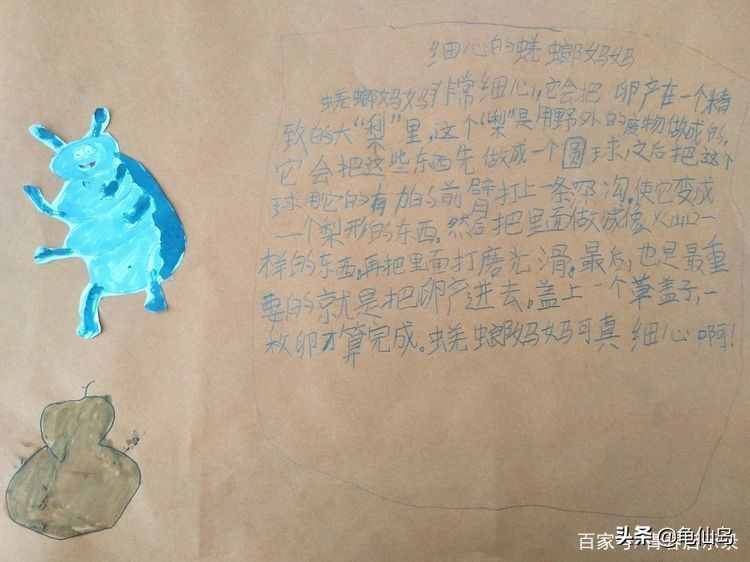 细心的蜣螂妈妈
蜣螂妈妈非常细心,它会把卵产在一个精
致的大“梨”里,这个“梨”是用野外的废物做成的,
它会把这些东西先做成一个圆球,之后把这个
球用它的有力的前臂打上一条沟,使它变成
一个梨形的东西,然后把里面做成像火山口一
样的东西,再把里面打磨光滑。最后,也是最重
要的就是把卵产进去。盖上一个草盖子,一
枚卵才算完成。蜣螂妈妈可真细心啊!
头条@龟仙岛
百家号